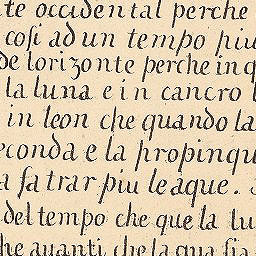 te occidental perche
cosi ad un tempo piu
de lorizonte perche in q
la luna e in cancro
in leon che quando la
econda e la propinqu
a fa trar piu le aque.
del tempo che que la lu
he auanti che la qua sia